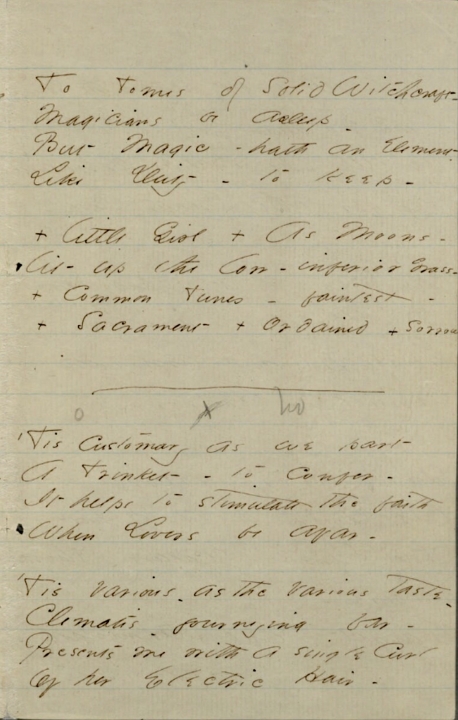 To Tomes of Solid Witchcraft -
Magicians be asleep
But Magic - hath an Element
Like Deity - to keep -
+ little + As Moons -
Lit up the Low - inferior Grass -
+ Common Tunes - faintest -
+ Sacrament + Ordained + Sorrow
'Tis Customary as we part
A Trinket - to confer -
It helps to stimulate the faith
When Lovers be afar -
'Tis various - as the various Taste -
Clematis - journeying far -
Presents me with a single Curl
Of her Electric Hair -